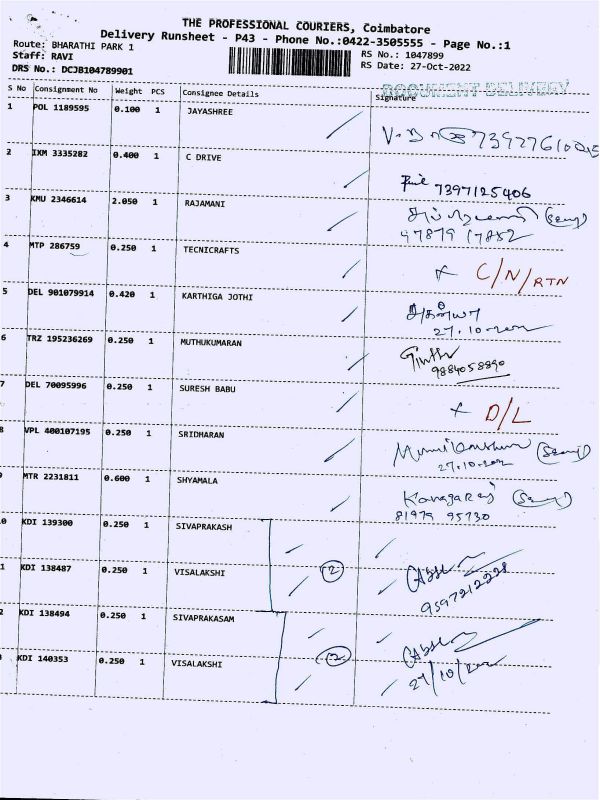 THE PROFESSIONAL COURIERS, Coimbatore
Delivery Runsheet - P43 - Phone No.:0422-3505555 - Page No.:1
Route: BHARATHI PARK 1 RS No.: 1047899
Staff: RAVI RS Date: 27-Oct-2022
DRS No.: DCJB104789901
DOCUMENT DELIVERY
S No Consignment No Weight PCS Consignee Details Signature
1 POL 1189595 0.100 1 JAYASHREE
2 IXM 3335282 0.400 1 C DRIVE 7397125406
3 KMU 2346614 2.050 1 RAJAMANI
97879 17852
4 MTP 286759 0.250 1 TECNICRAFTS C/N/RTN
5 DEL 901079914 0.420 1 KARTHIGA JOTHI
27.10.2022
6 TRZ 195236269 0.250 1 MUTHUKUMARAN
9884058890
7 DEL 70095996 0.250 1 SURESH BABU D/L
8 VPL 400107195 0.250 1 SRIDHARAN
27.10.2022
MTR 2231811 0.600 1 SHYAMALA Kanagaraj
81979 95730
0 KDI 139300 0.250 1 SIVAPRAKASH
1 KDI 138487 0.250 1 VISALAKSHI 2
9597212228
2 KDI 138494 0.250 1 SIVAPRAKASAM
KDI 140353 0.250 1 VISALAKSHI 2
27/10/2022